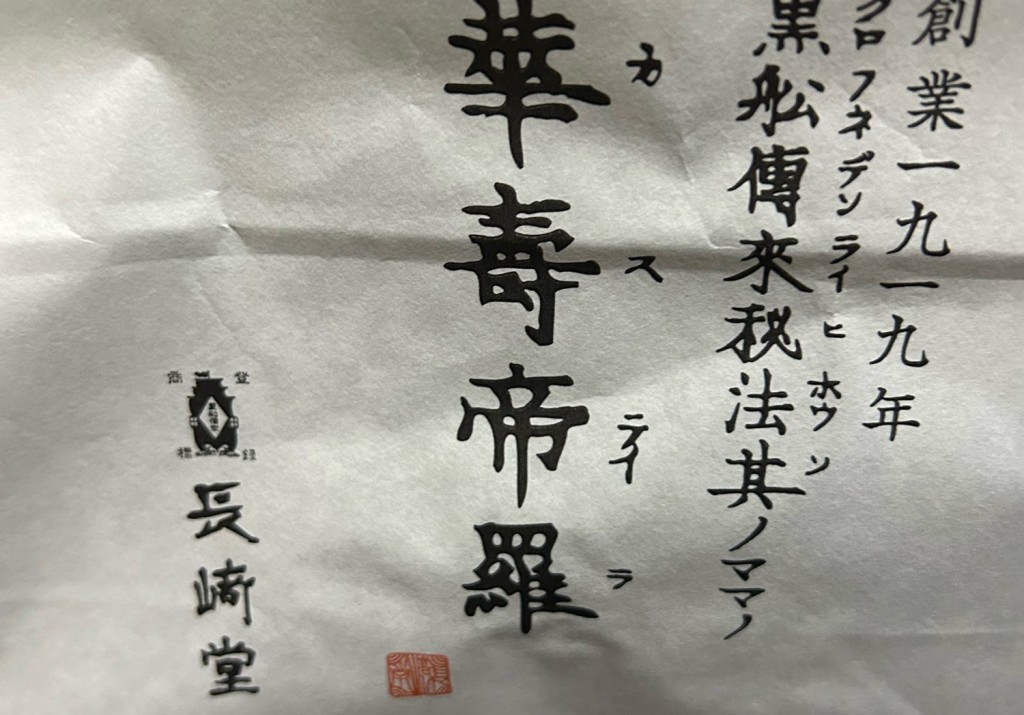 創業一九一九年
クロフネデンライヒホウソ
黒船傳來秘法其ノママノ
カステイラ
華壽帝羅
登録商標
長崎堂